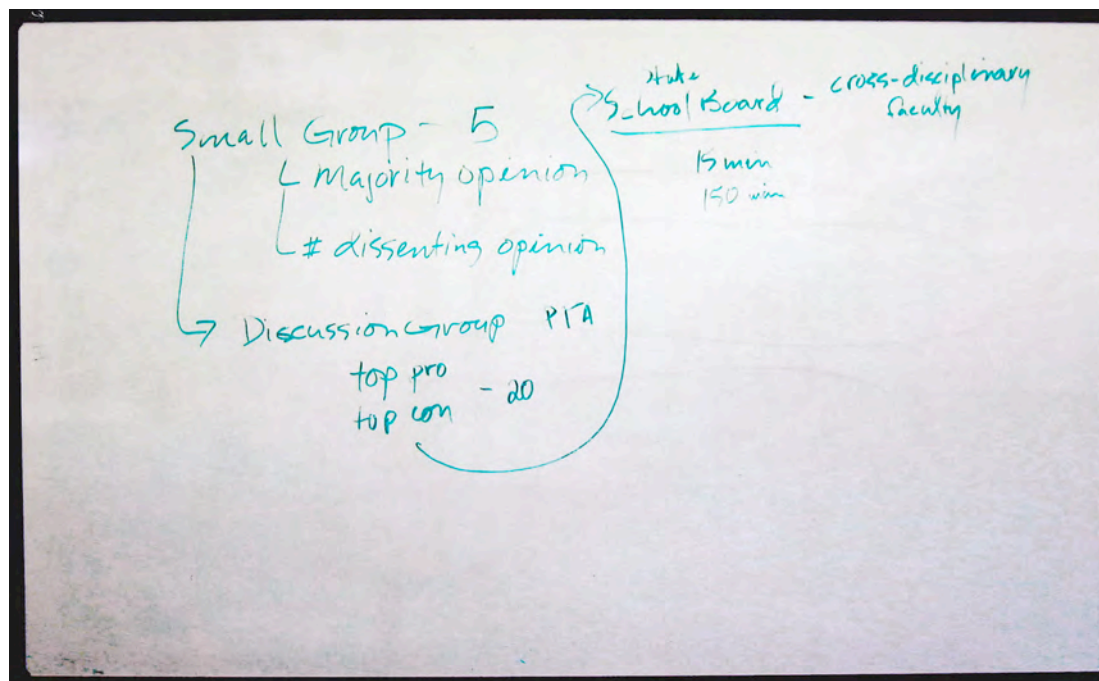 Small Group - 5
Majority opinion
# dissenting opinion
Discussion Group PTA
top pro
top con - 20
School Board - cross-disciplinary
faculty
15 min
150 min